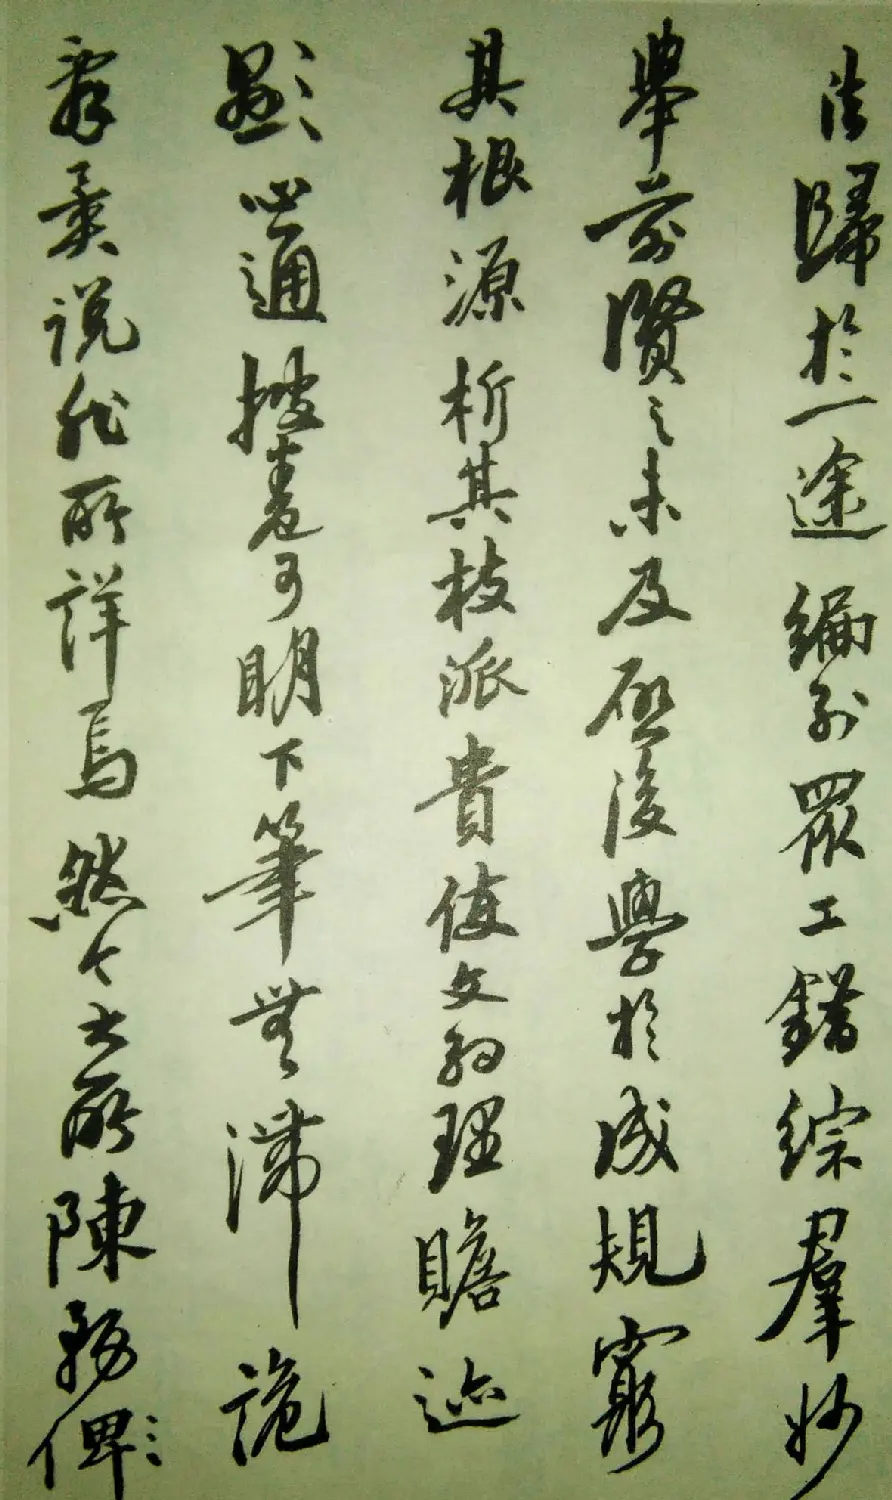 法歸於一途編列眾工錯綜羣妙
舉前賢之未及啟後學於成規窺
其根源析其枝派貴使文約理贍迹
顯心通披卷可明下筆無滯詭
辭異説非所詳焉然今之所陳務裨